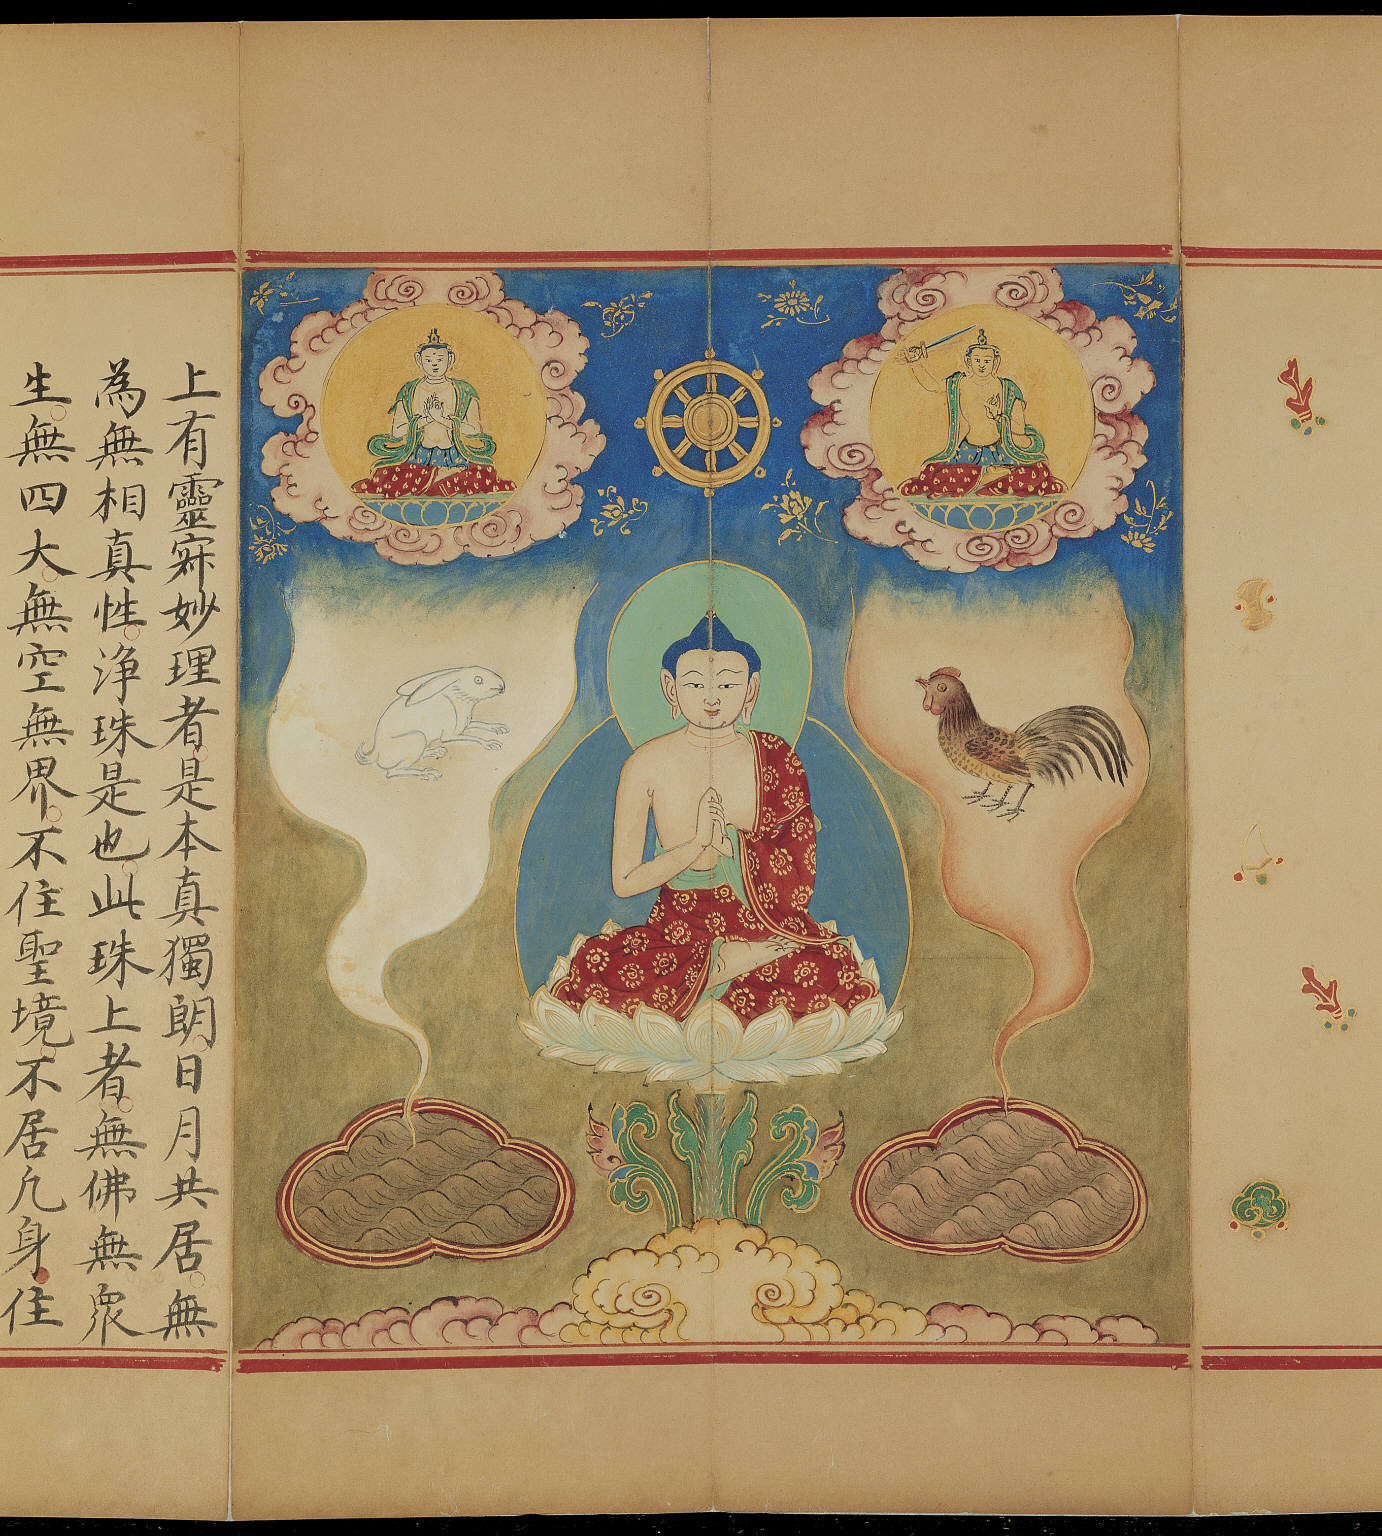 上有靈㝛妙理者是本真獨朗日月共居無
為無相真性淨珠是也此珠上者無佛無眾
生無四大無空無界不住聖境不居凡身住